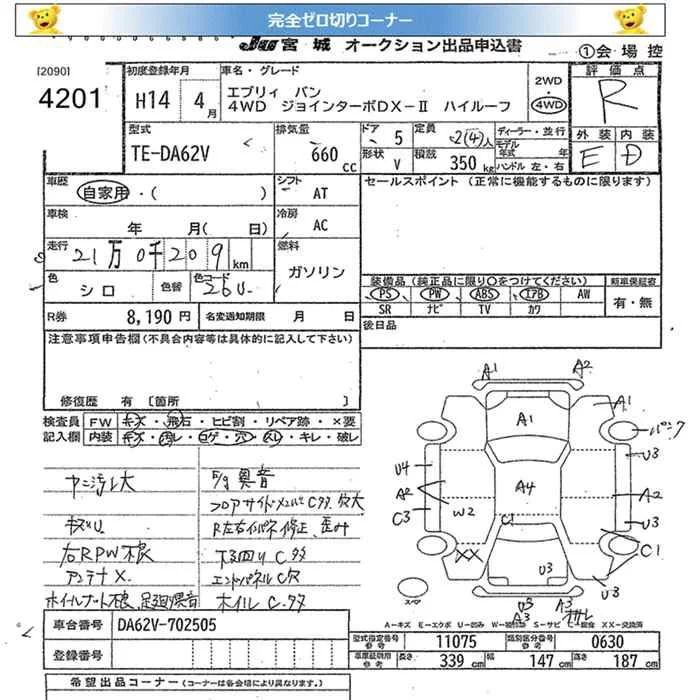 完全ゼロ切りコーナー
JU宮城 オークション出品申込書
①会場控
[2090]
4201
初度登録年月
H14 4月
車名・グレード
エブリィ バン
4WD ジョインターボDX-Ⅱ ハイルーフ
2WD
4WD
評価点
R
外装 内装
E D
型式
TE-DA62V
排気量
660 CC
ドア 5
形状 V
定員 2(4)人
積載 350 kg
ディーラー・並行
モデル年式 年
ハンドル 左・右
車歴
自家用・( )
シフト
AT
セールスポイント (正常に機能するものに限ります)
車検
年 月( 日)
冷房
AC
走行
21万0千209km
燃料
ガソリン
色
シロ
色替
色コード
26U
装備品 (純正品に限り○をつけてください)
PS PW ABS エアB AW
SR ナビ TV カワ
新車保証書
有・無
R券 8,190円
名変通知期限 月 日
後日品
注意事項申告欄(不具合内容等は具体的に記入して下さい)
修復歴 有 [箇所
検査員記入欄
FW キズ・飛石・ヒビ割・リペア跡・×要
内装 キズ・汚レ・コゲ・穴・スレ・キレ・破レ
ヤニ汚レ大
右RPW不良
アンテナX
E/g異音
下回りC
エンドパネルC穴
A1
A2
A1
A1
パンク
U3
U4
A2
C3
W2
A4
A2
U3
C1
C1
XX
U3
U3
U3
A3
A3
スペア
A-キズ E-エクボ U-凹み W-補修跡 S-サビ C-腐食 XX-交換済
車台番号 DA62V-702505
登録番号
型式指定番号 参考 11075
類別区分番号 参考 0630
車庫証明用 参考 長さ 339 cm 幅 147 cm 高さ 187 cm
希望出品コーナー (コーナーは各会場により異なります。)